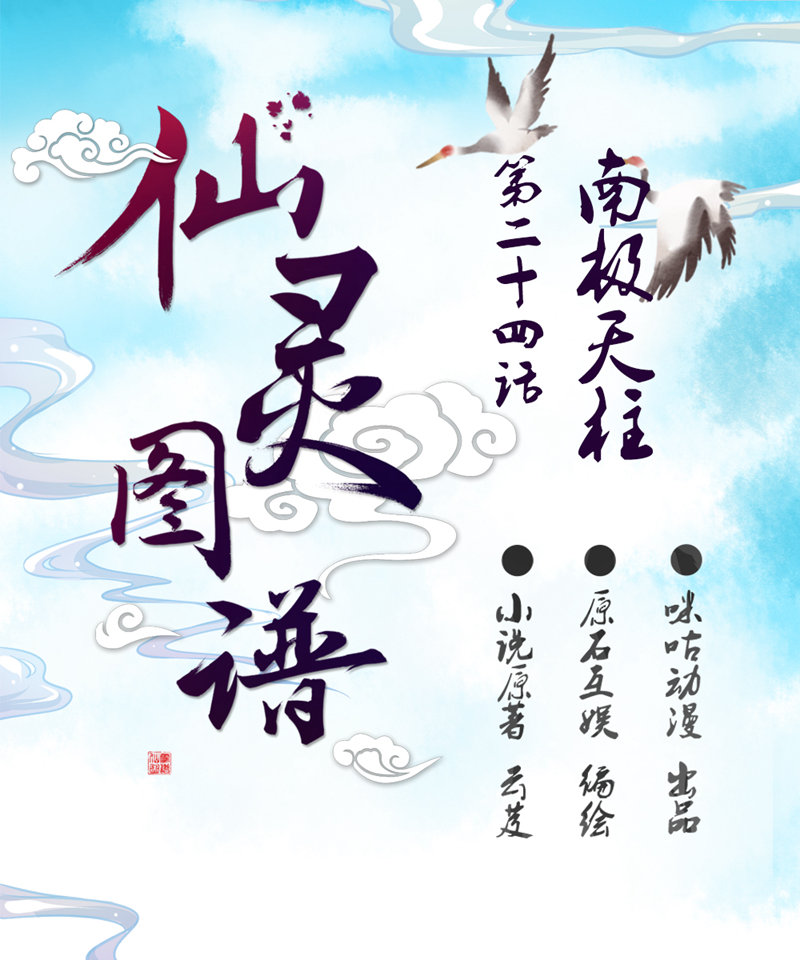 仙灵图谱
南极天柱
第二十四话
咪咕动漫 出品
原石互娱 编绘
小说原著 云芨